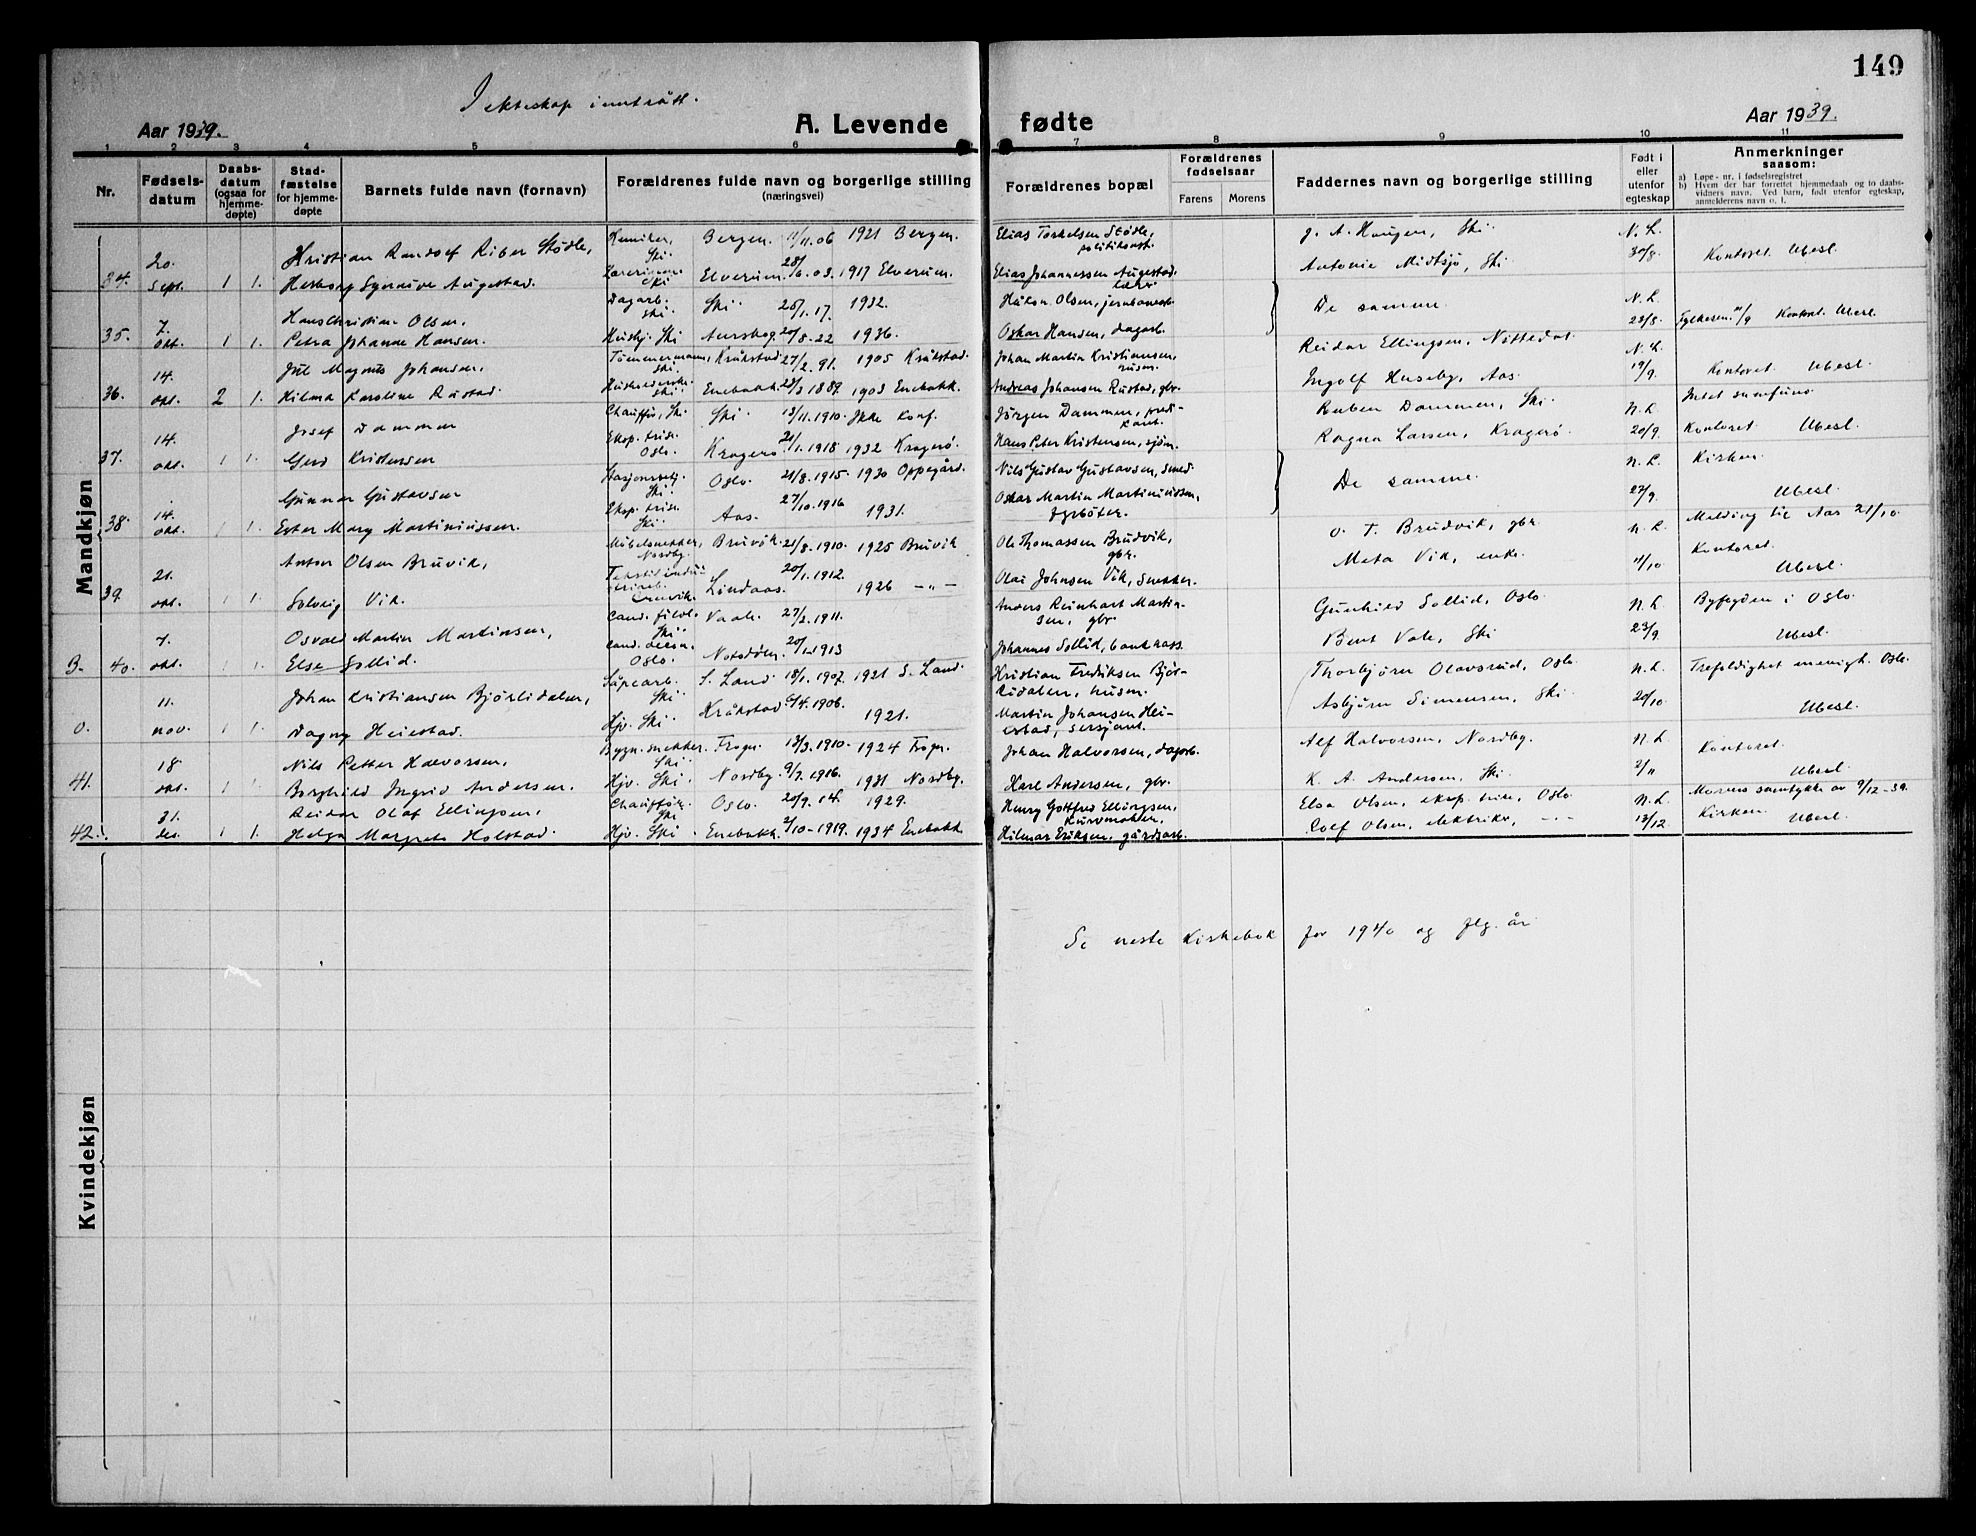 149
I ekteskap inntrått.
Aar 1939.
A. Levende fødte
Aar 1939.
1 2 3 4 5 6 7 8 9 10 11
Nr.
Fødsels-
datum
Daabs-
datum
(ogsaa for
hjemme-
døpte)
Stad-
fæstelse
for hjemme-
døpte
Barnets fulde navn (fornavn)
Forældrenes fulde navn og borgerlige stilling
(næringsvei)
Forældrenes bopæl
Forældrenes
fødselsaar
Farens Morens
Faddernes navn og borgerlige stilling
Født i
eller
utenfor
egteskap
Anmerkninger
saasom:
a) Løpe-nr. i fødselsregistret
b) Hvem der har forrettet hjemmedaab og to daabs-
vidners navn. Ved barn, født utenfor egteskap,
anmelderens navn o. l.
Mandkjøn
20. Kristian Randolf Riber Stødle, Kemiker, Ski. Bergen. 11/11.06 1921 Bergen. Elias Torkelsen Stødle, politikonst. J. A. Haugen, Ski. N. L.
34. sept. 1 1. Herborg Synnøve Augestad. Ski Elverum. 1917 Elverum. Elias Johannessen Augestad. lærer Antonie Midtsjø, Ski 30/8. Kontoret. Ubesl.
7. Hans Christian Olsen, Dagarb. Ski. Ski 26/1.17. 1932. Håkon Olsen, jernbanearb. De samme. N. L.
35. okt. 1 1. Petra Johanne Hansen. Husbj. Ski Aurskog. 20/8.22 1936. Oskar Hansen, dagarb. 23/8. Kontoret. Ubesl.
14. Jul Magnus Johansen, Tømmermann, Ski. Kråkstad. 27/2.91. 1905 Kråkstad. Johan Martin Kristiansen, husm. Reidar Ellingsen, Nittedal. N. L.
36. okt. 2 1. Hilma Karoline Rustad. Ski. Enebakk. 1889. 1903 Enebakk. Andreas Johansen Rustad, gbr. Ingolf Huseby, Aas. 19/9. Kontoret. Ubesl.
14. Josef Dammen Chauffør, Ski Ski 13/11.1910. Ikke konf. Jørgen Dammen, predikant. Ruben Dammen, Ski N. L. Intet samfunn
37. okt. 1 1. Gerd Kristensen Eksp. trise. Oslo. Kragerø 21/1.1918 1932 Kragerø. Hans Peter Kristensen, sjøm. Ragna Larsen, Kragerø. 20/9. Kontoret. Ubesl.
14. Gunnar Gustavsen Stasjonsbetj. Ski. Oslo. 21/8.1915 1930 Oppegård. Nils Gustav Gustavsen, smed. De samme. N. L. Kirken
38. okt. 1 1. Ester Mary Martiniussen. Eksp. trise. Ski. Aas. 27/10.1916 1931. Oskar Martin Martiniussen, fyrbøter. 27/9. Ubesl.
21. Anton Olsen Bruvik, Møbelsnekker, Nordby. Bruvik. 21/8.1910. 1925 Bruvik Ole Thomassen Brudvik, gbr. O. T. Brudvik, gbr. N. L. Melding til Aas 21/10.
39. okt. 1 1. Solveig Vik. Lindaas. 20/1.1912. 1926 —„— Olai Johnsen Vik, snekker. Meta Vik, enke. 11/10 Kontoret. Ubesl.
7. Osvald Martin Martinsen, Cand. filol. Ski. Vaale. 27/2.1911. Anders Reinhart Martinsen, gbr. Gunhild Sollid, Oslo. N. L. Byfogden i Oslo.
B. 40. okt. 1 1. Else Sollid. Oslo. Notodden. 1913 Johannes Sollid, bankkass. Bent Vale, Ski 23/9. Ubesl.
11. Johan Kristiansen Bjørlidalen, Såpearb. Ski. S. Land. 18/1.1907. 1921 S. Land. Kristian Fredriksen Bjørlidalen, husm. Thorbjørn Olavsrud, Oslo. N. L. Trefoldighet menigh. Oslo.
0. nov. 1 1. Dagny Heiestad. Hjv. Ski. Kråkstad. 6/4.1906. 1921. Martin Johansen Heiestad, sersjant. Asbjørn Simensen, Ski. 20/10 Ubesl.
18 Nils Petter Halvorsen, Bygn. snekker. Ski. Frogn. 13/3.1910. 1924 Frogn. Johan Halvorsen, dagarb. Alf Halvorsen, Nordby. N. L. Kontoret.
41. okt. 1 1. Borghild Ingrid Andersen. Hjv. Ski. Nordby. 9/7.1916. 1931 Nordby. Karl Andersen, gbr. K. A. Andersen, Ski. 2/11 Ubesl.
31. Reidar Olaf Ellingsen, Chauffør. Ski Oslo. 20/9.14. 1929. Henry Gottfred Ellingsen, Elsa Olsen, eksp. trise, Oslo N. L. Morens samtykke av 9/12-39.
42. des. 1 1. Helga Margrete Holstad. Hjv. Ski. Enebakk. 2/10-1919. 1934 Enebakk Hilmar Eriksen, gårdsarb. Rolf Olsen, elektriker, —„— 13/12 Kirken Ubesl.
Se neste kirkebok for 1940 og flg. år
Kvindekjøn